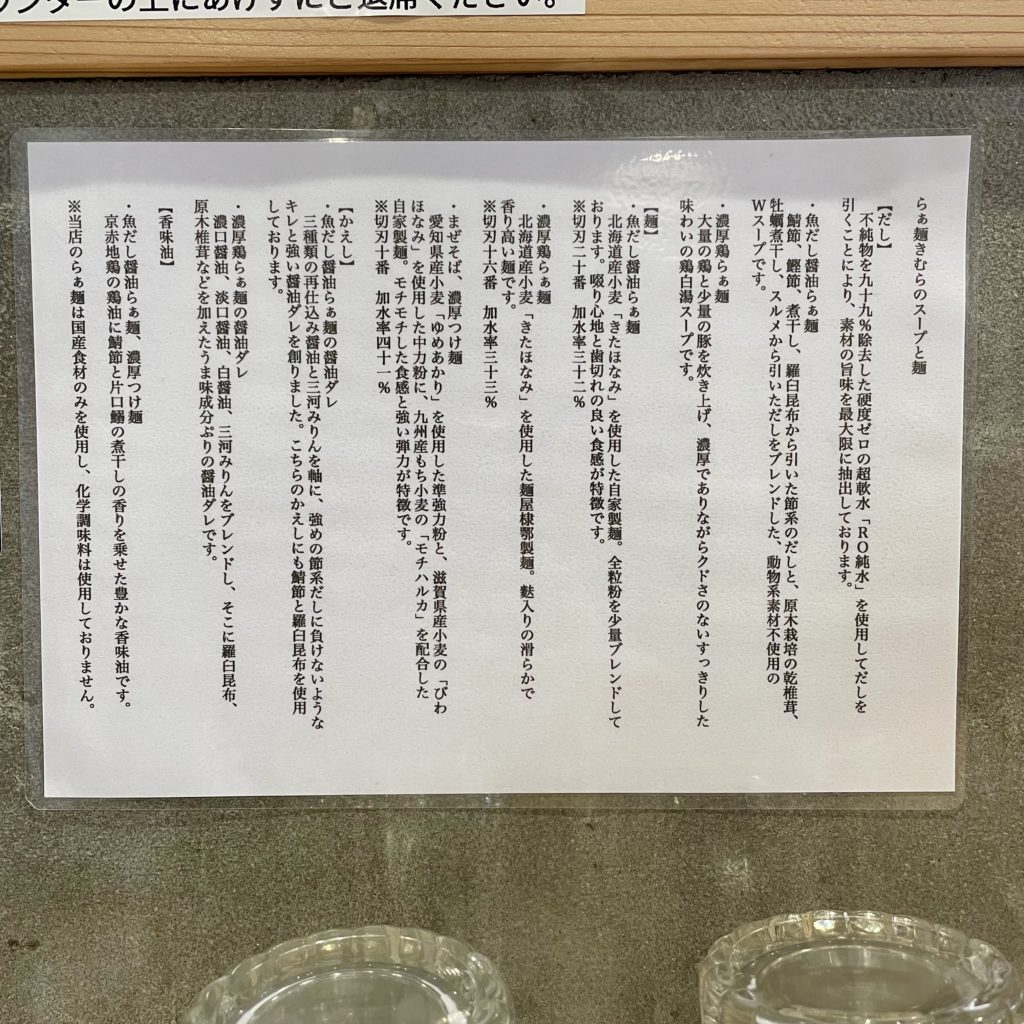 ウンターの上にあげずにご退席ください。
らぁ麺きむらのスープと麺
【だし】
不純物を九十九％除去した硬度ゼロの超軟水「ＲＯ純水」を使用してだしを
引くことにより、素材の旨味を最大限に抽出しております。
・魚だし醤油らぁ麺
鯖節、鰹節、煮干し、羅臼昆布から引いた節系のだしと、原木栽培の乾椎茸、
牡蠣煮干し、スルメから引いただしをブレンドした、動物系素材不使用の
Ｗスープです。
・濃厚鶏らぁ麺
大量の鶏と少量の豚を炊き上げ、濃厚でありながらクドさのないすっきりした
味わいの鶏白湯スープです。
【麺】
・魚だし醤油らぁ麺
北海道産小麦「きたほなみ」を使用した自家製麺。全粒粉を少量ブレンドして
おります。啜り心地と歯切れの良い食感が特徴です。
※切刃二十番　加水率三十二％
・濃厚鶏らぁ麺
北海道産小麦「きたほなみ」を使用した麺屋棣鄂製麺。麩入りの滑らかで
香り高い麺です。
※切刃十六番　加水率三十三％
・まぜそば、濃厚つけ麺
愛知県産小麦「ゆめあかり」を使用した準強力粉と、滋賀県産小麦の「びわ
ほなみ」を使用した中力粉に、九州産もち小麦の「モチハルカ」を配合した
自家製麺。モチモチした食感と強い弾力が特徴です。
※切刃十番　加水率四十一％
【かえし】
・魚だし醤油らぁ麺の醤油ダレ
三種類の再仕込み醤油と三河みりんを軸に、強めの節系だしに負けないような
キレと強い醤油ダレを創りました。こちらのかえしにも鯖節と羅臼昆布を使用
しております。
・濃厚鶏らぁ麺の醤油ダレ
濃口醤油、淡口醤油、白醤油、三河みりんをブレンドし、そこに羅臼昆布、
原木椎茸などを加えたうま味成分ぷりの醤油ダレです。
【香味油】
・魚だし醤油らぁ麺、濃厚つけ麺
京赤地鶏の鶏油に鯖節と片口鰯の煮干しの香りを乗せた豊かな香味油です。
※当店のらぁ麺は国産食材のみを使用し、化学調味料は使用しておりません。